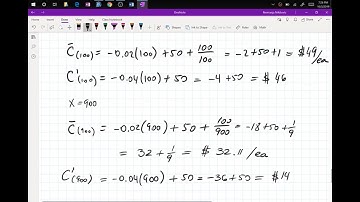 C̄(100) = -0.02(100) + 50 + 100/100 = -2+50+1 = $49/ea
C'(100) = -0.04(100) + 50 = -4+50 = $46
X = 900
C̄(900) = -0.02(900) + 50 + 100/900 = -18+50+1/9
= 32 + 1/9 = $32.11/ea
C'(900) = -0.04(900) + 50 = -36+50 = $14